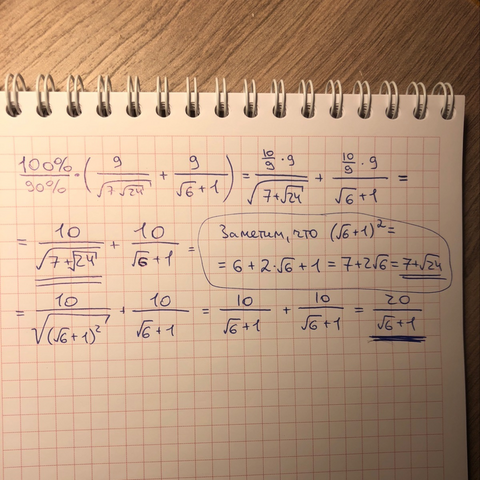 100%/90% · (9/√(7 √24) + 9/(√6+1)) = (10/9 · 9)/√(7+√24) + (10/9 · 9)/(√6+1) =
= 10/√(7+√24) + 10/(√6+1) =
Заметим, что (√6+1)² =
= 6+2·√6+1 = 7+2√6 = 7+√24
= 10/√((√6+1)²) + 10/(√6+1) = 10/(√6+1) + 10/(√6+1) = 20/(√6+1)